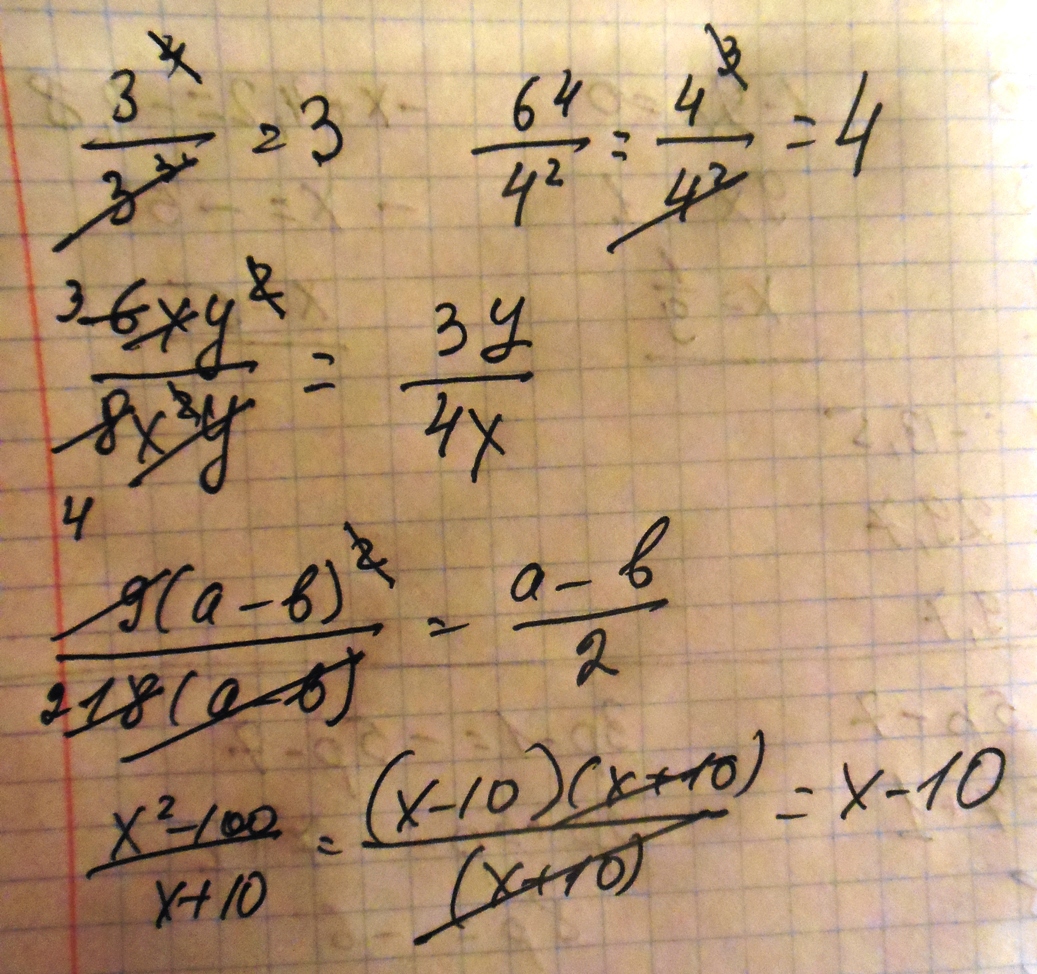 3^4 / 3^3 = 3    64 / 4^2 = 4^3 / 4^2 = 4
3 6xy^2 / 8x^2y 4 = 3y / 4x
9(a-b)^2 / 2 18(a-b) = a-b / 2
x^2-100 / x+10 = (x-10)(x+10) / (x+10) = x-10